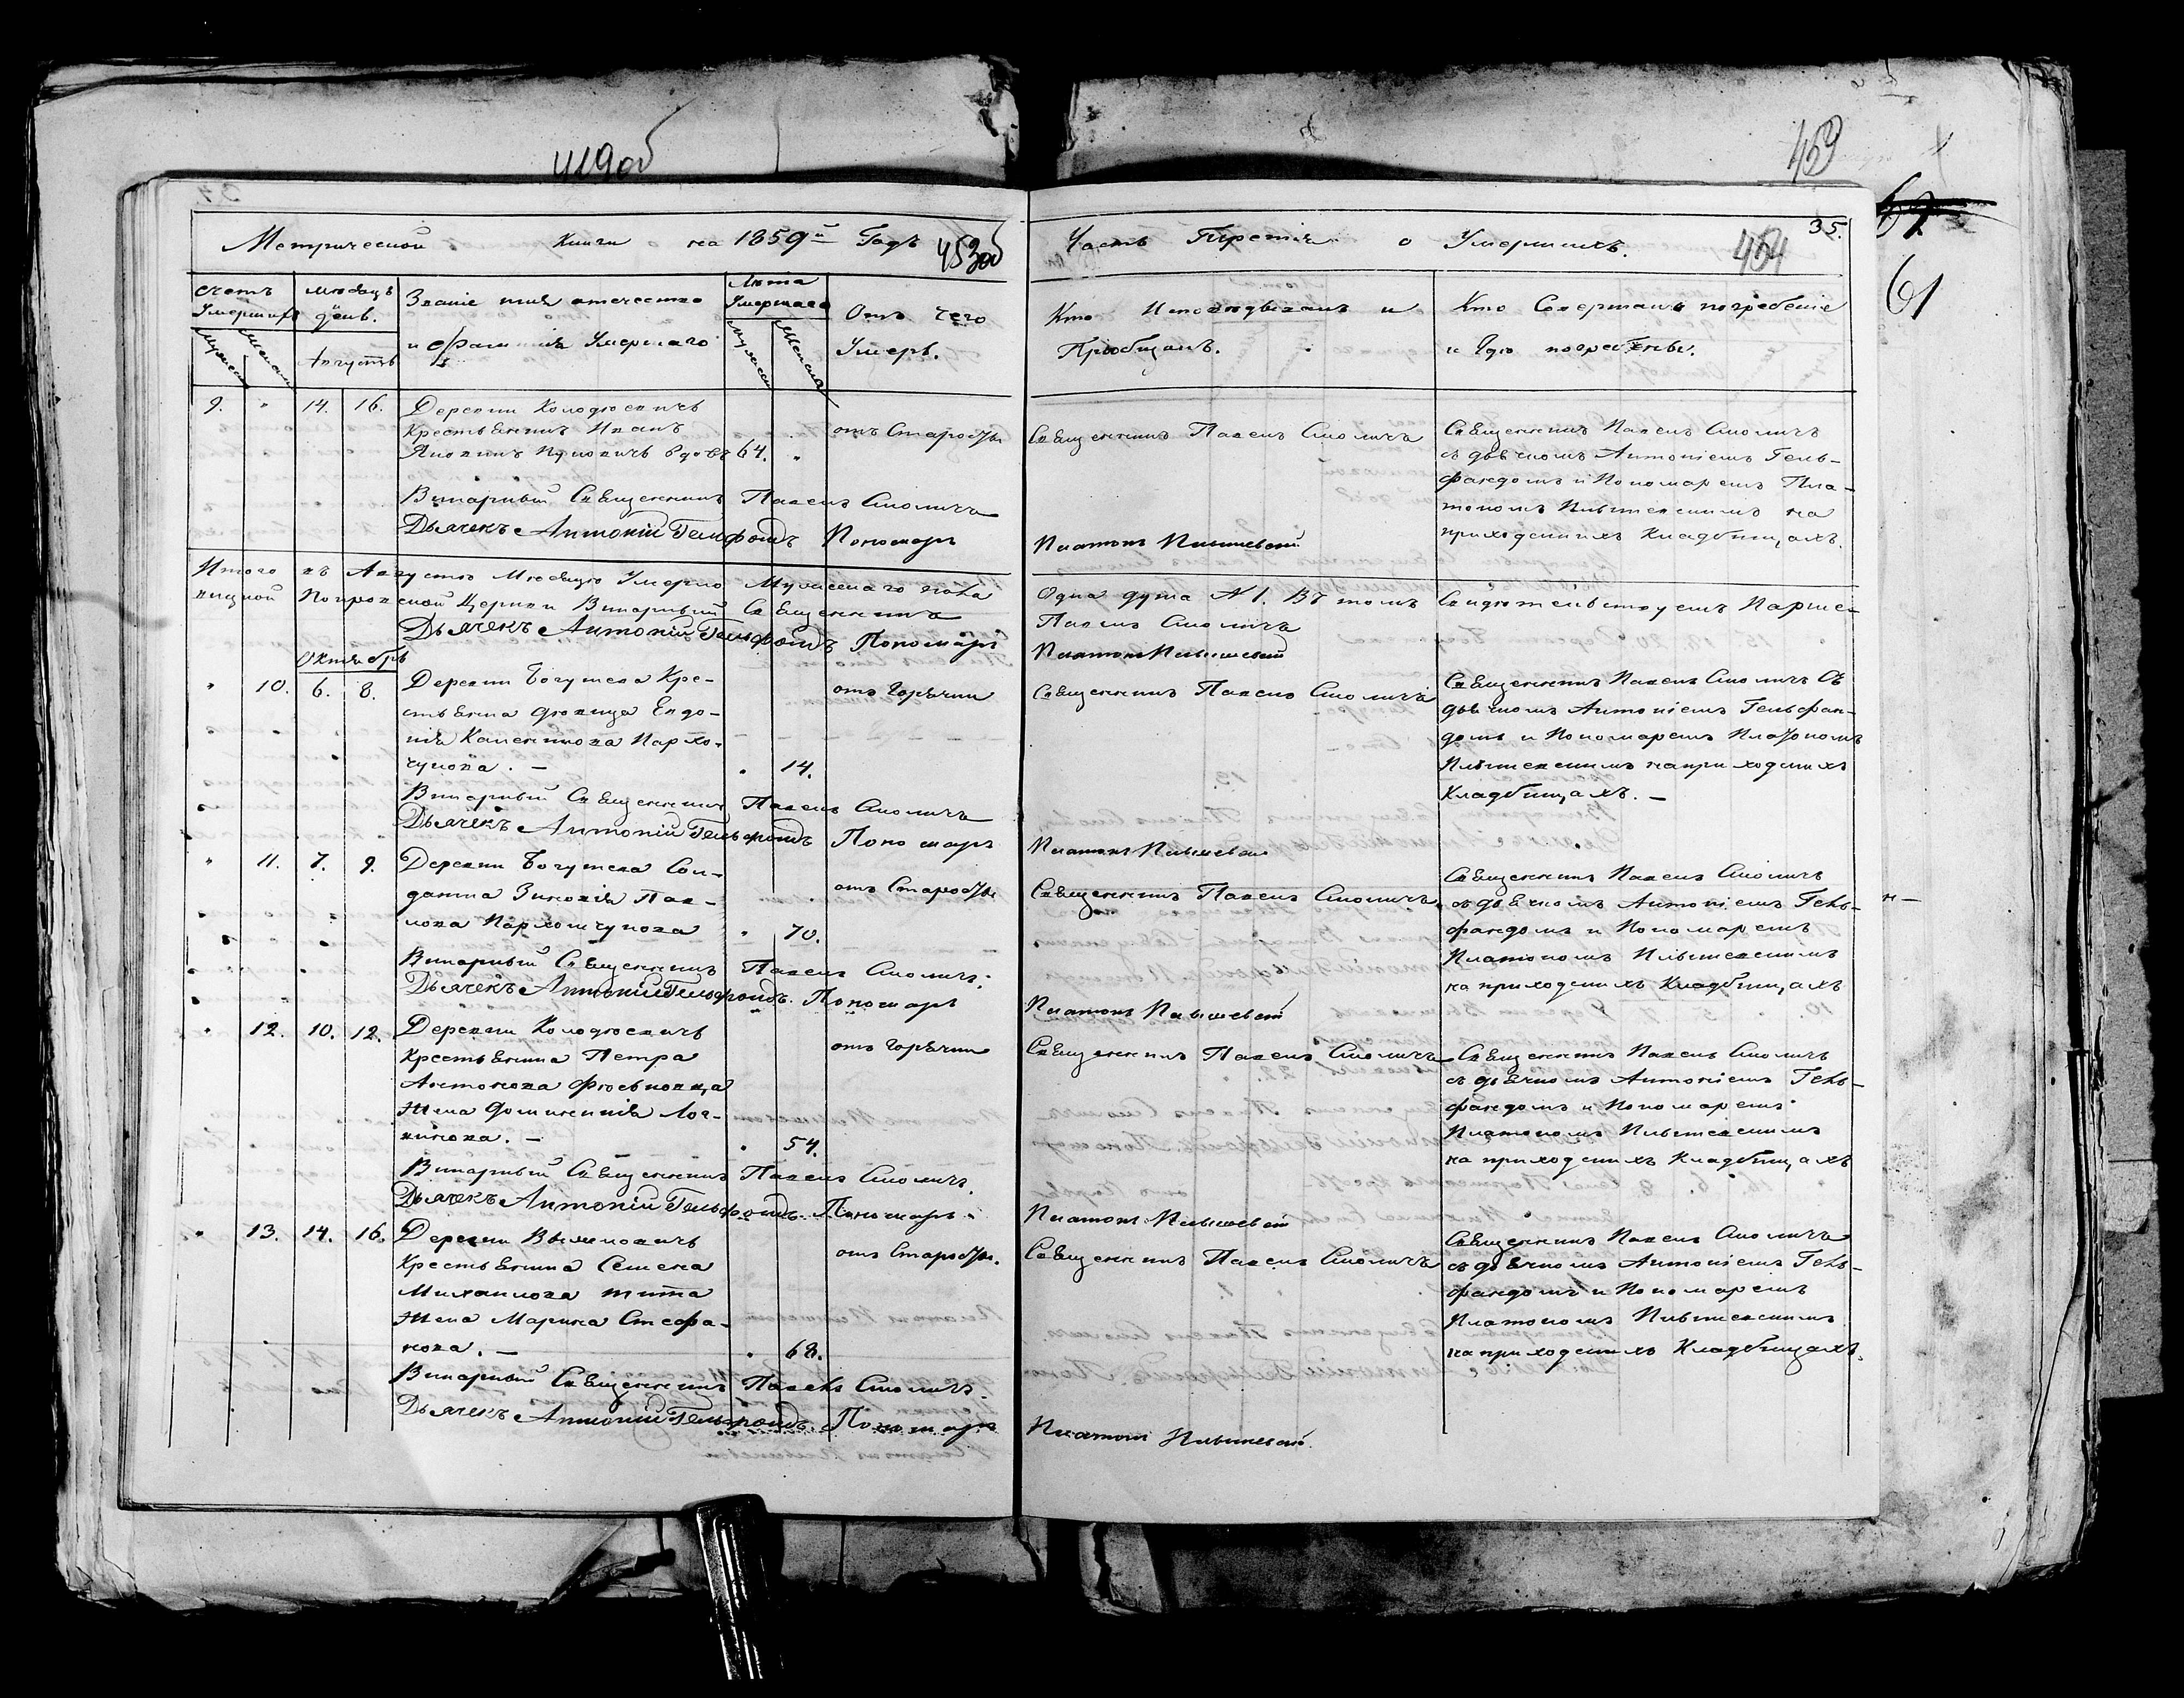 419об
459
Метрической Книги на 1859й Годъ 453об
Часть Третія о Умершихъ. 454 35.
57
61
счетъ Умершихъ
Мужеска
Женска
месяцъ день.
Августъ
Званіе имя отечество
и фамилія Умершаго
Лета Умершаго
Мужеска
Женска
Отъ чего
Умеръ.
Кто Исповедывалъ и
Пріобщалъ.
Кто Совершалъ погребеніе
и Где погребены.
9. " 14. 16. Деревни Колодіевичъ
Крестьянинъ Иванъ
вдовъ 64. "
отъ Старости
Священникъ Павелъ Смоличъ
Священникъ Павелъ Смоличъ
съ дьячкомъ Антоніемъ Гель-
фандомъ и Пономаремъ Пла-
тономъ на
приходскихъ Кладбищахъ.
Викарный Священникъ Павелъ Смоличъ
Дьячекъ Антоній Гельфондъ Пономарь
Платонъ
Итого въ Августе Месяце Умерло Мужескаго пола
Одна душа № 1. Въ томъ Свидетельствуемъ
Церкви Викарный Священникъ
Павелъ Смоличъ
Дьячекъ Антоній Гельфондъ Пономарь
Платонъ
Октябрь
" 10. 6. 8. Деревни Богушева Кре-
стьянка девица Евдо-
кія
" 14.
отъ Горячки
Священникъ Павелъ Смоличъ
Священникъ Павелъ Смоличъ Съ
дьячкомъ Антоніемъ Гельфан-
домъ и Пономаремъ Платономъ
на приходскихъ
Кладбищахъ. —
Викарный Священникъ Павелъ Смоличъ
Дьячекъ Антоній Гельфондъ Пономарь
Платонъ
" 11. 7. 9. Деревни Богушева Сол-
датка Зиновія Пав-
лова " 70.
отъ Старости
Священникъ Павелъ Смоличъ
Священникъ Павелъ Смоличъ
съ дьячкомъ Антоніемъ Гель-
фандомъ и Пономаремъ
Платономъ
на приходскихъ Кладбищахъ
Викарный Священникъ Павелъ Смоличъ.
Дьячекъ Антоній Гельфондъ. Пономарь
Платонъ
" 12. 10. 12. Деревни Колодіевичъ
Крестьянина Петра
Антонова
жена Доминикія Лог-
винова. — " 54.
отъ Горячки
Священникъ Павелъ Смоличъ
Священникъ Павелъ Смоличъ
съ дьячкомъ Антоніемъ Гель-
фандомъ и Пономаремъ
Платономъ
на приходскихъ Кладбищахъ
Викарный Священникъ Павелъ Смоличъ.
Дьячекъ Антоній Гельфондъ. Пономарь
Платонъ
" 13. 14. 16. Деревни
Крестьянина Семена
Михайлова
жена Марина Стефа-
нова. — " 68.
отъ Старости.
Священникъ Павелъ Смоличъ
Священникъ Павелъ Смоличъ
съ дьячкомъ Антоніемъ Гель-
фандомъ и Пономаремъ
Платономъ
на приходскихъ Кладбищахъ.
Викарный Священникъ Павелъ Смоличъ.
Дьячекъ Антоній Гельфондъ. Пономарь
Платонъ